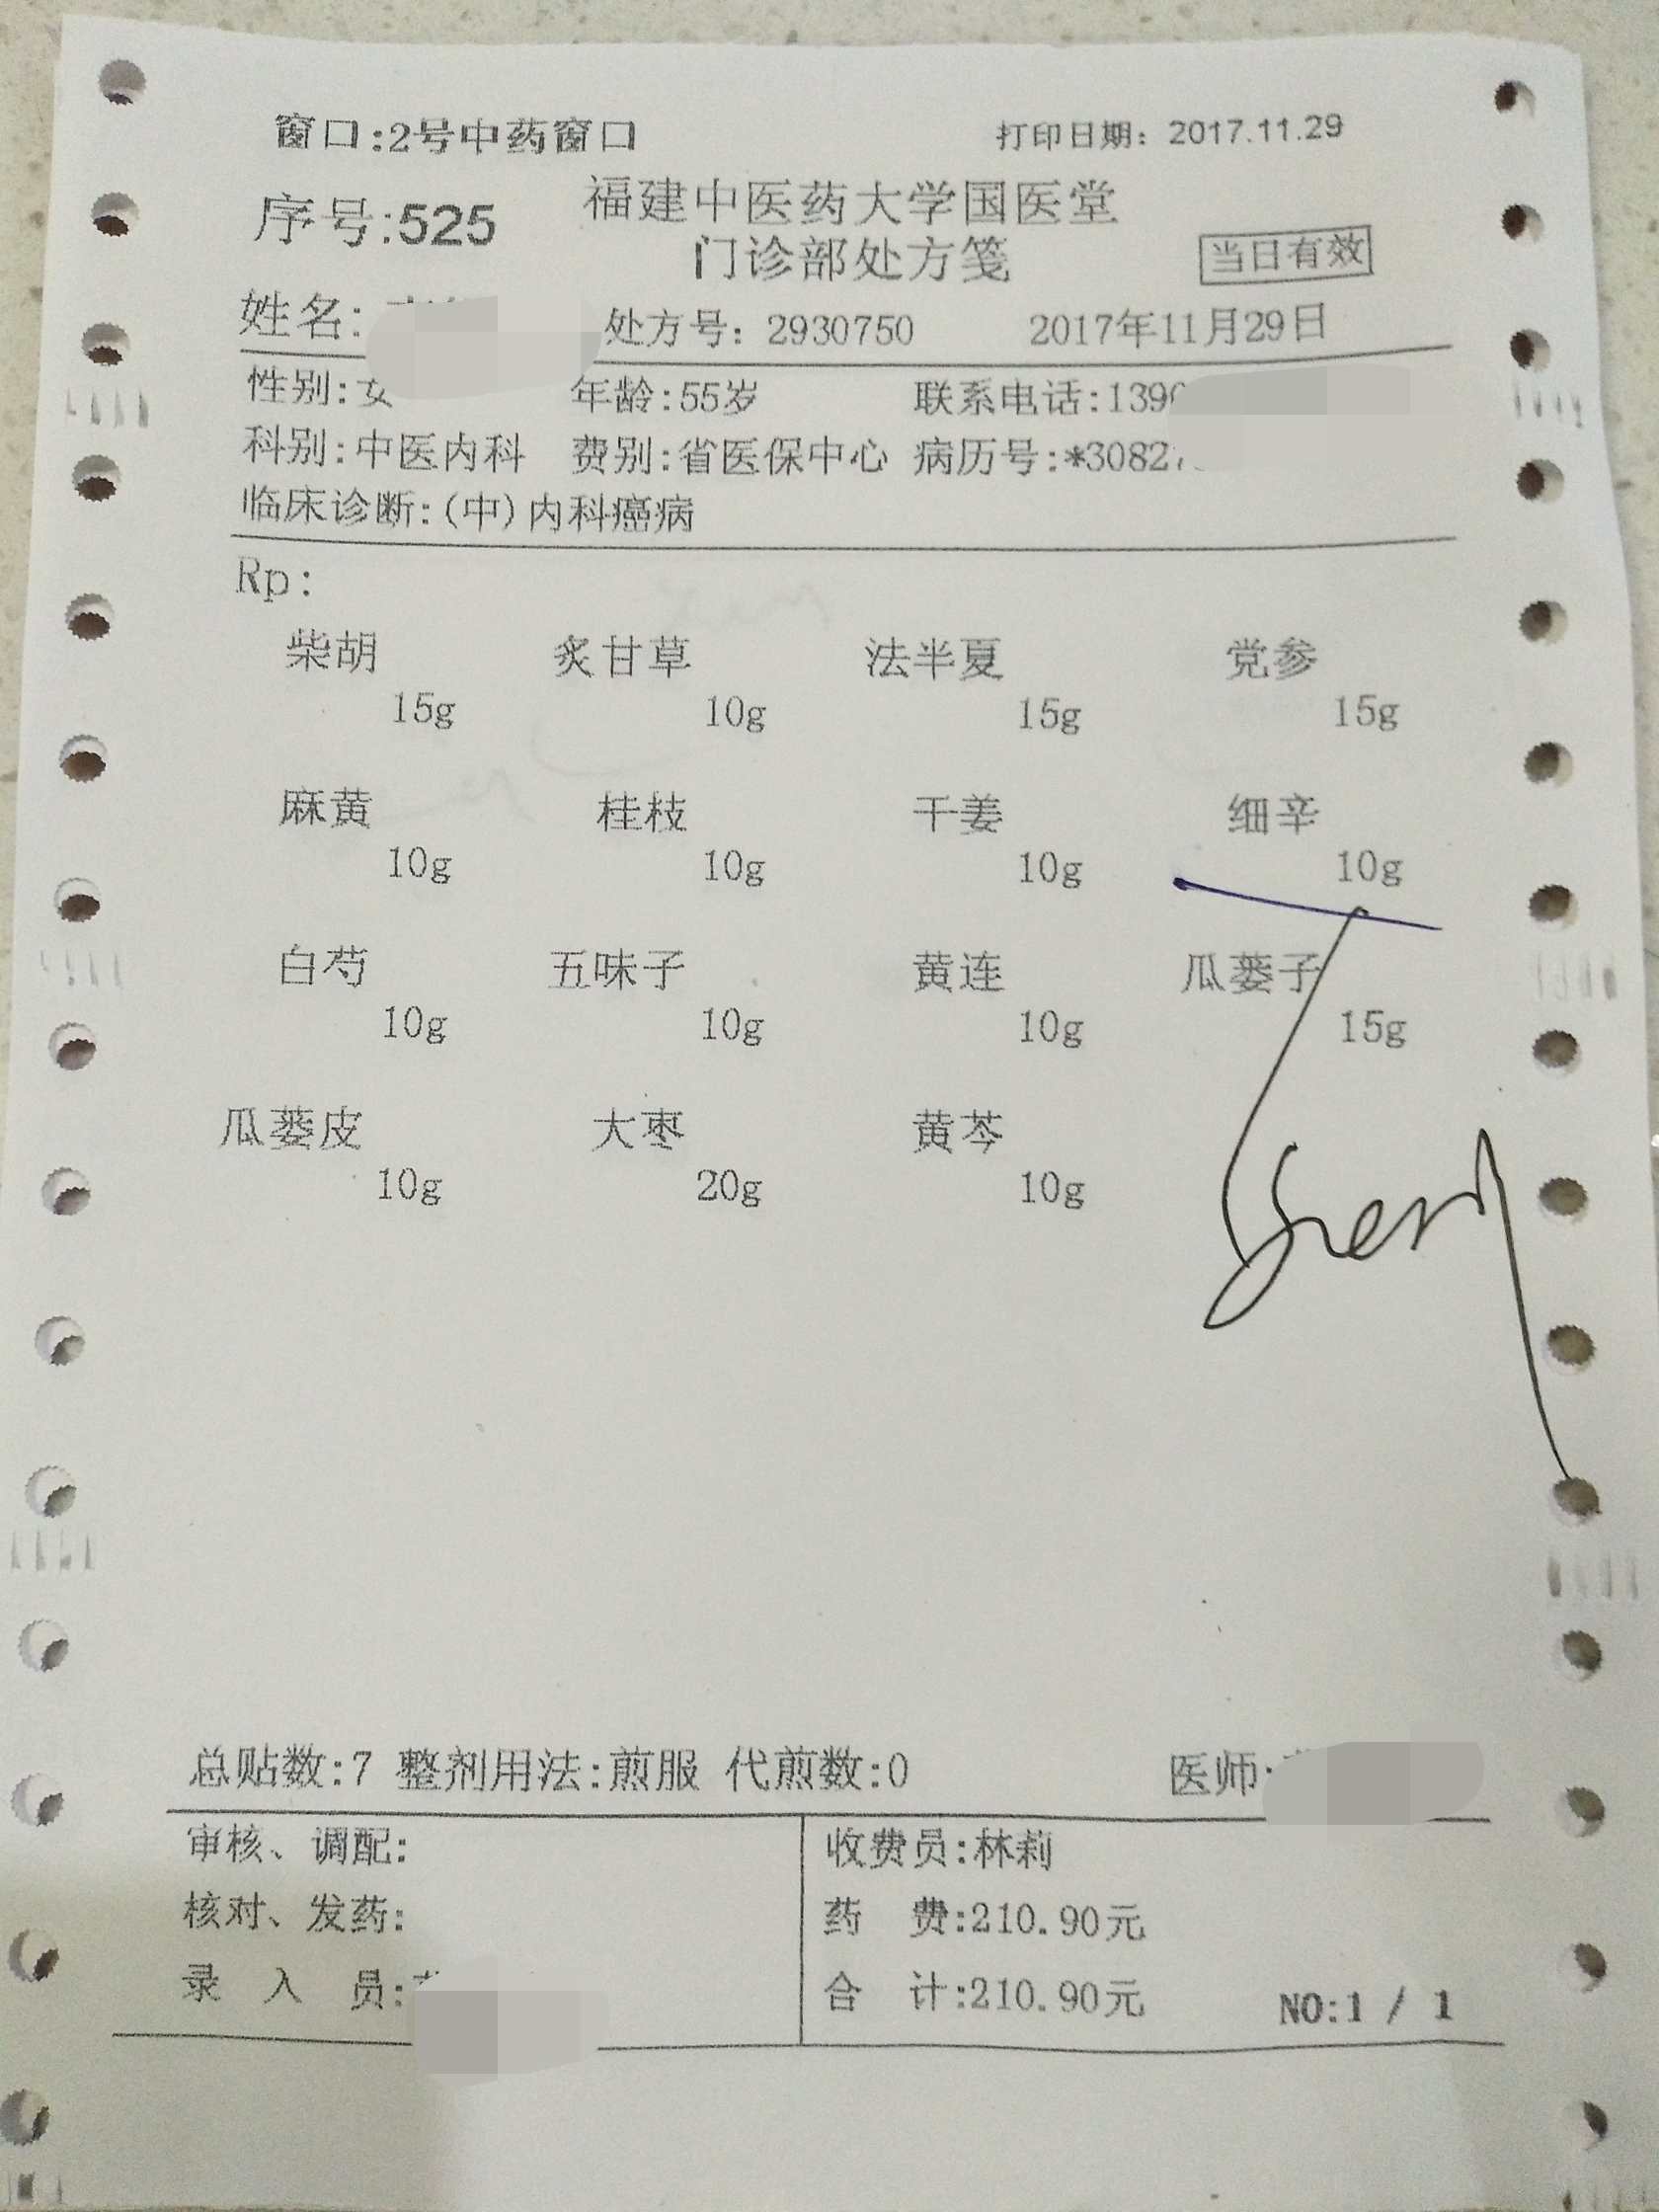 窗口:2号中药窗口 打印日期: 2017.11.29
序号:525 福建中医药大学国医堂
门诊部处方笺 当日有效
姓名: 处方号: 2930750 2017年11月29日
性别:女 年龄:55岁 联系电话:139
科别:中医内科 费别:省医保中心 病历号:*3082
临床诊断:(中)内科癌病
Rp:
柴胡 炙甘草 法半夏 党参
15g 10g 15g 15g
麻黄 桂枝 干姜 细辛
10g 10g 10g 10g
白芍 五味子 黄连 瓜蒌子
10g 10g 10g 15g
瓜蒌皮 大枣 黄芩
10g 20g 10g
总贴数:7 整剂用法:煎服 代煎数:0 医师:
审核、调配: 收费员:林莉
核对、发药: 药 费:210.90元
录 入 员: 合 计:210.90元 NO:1 / 1